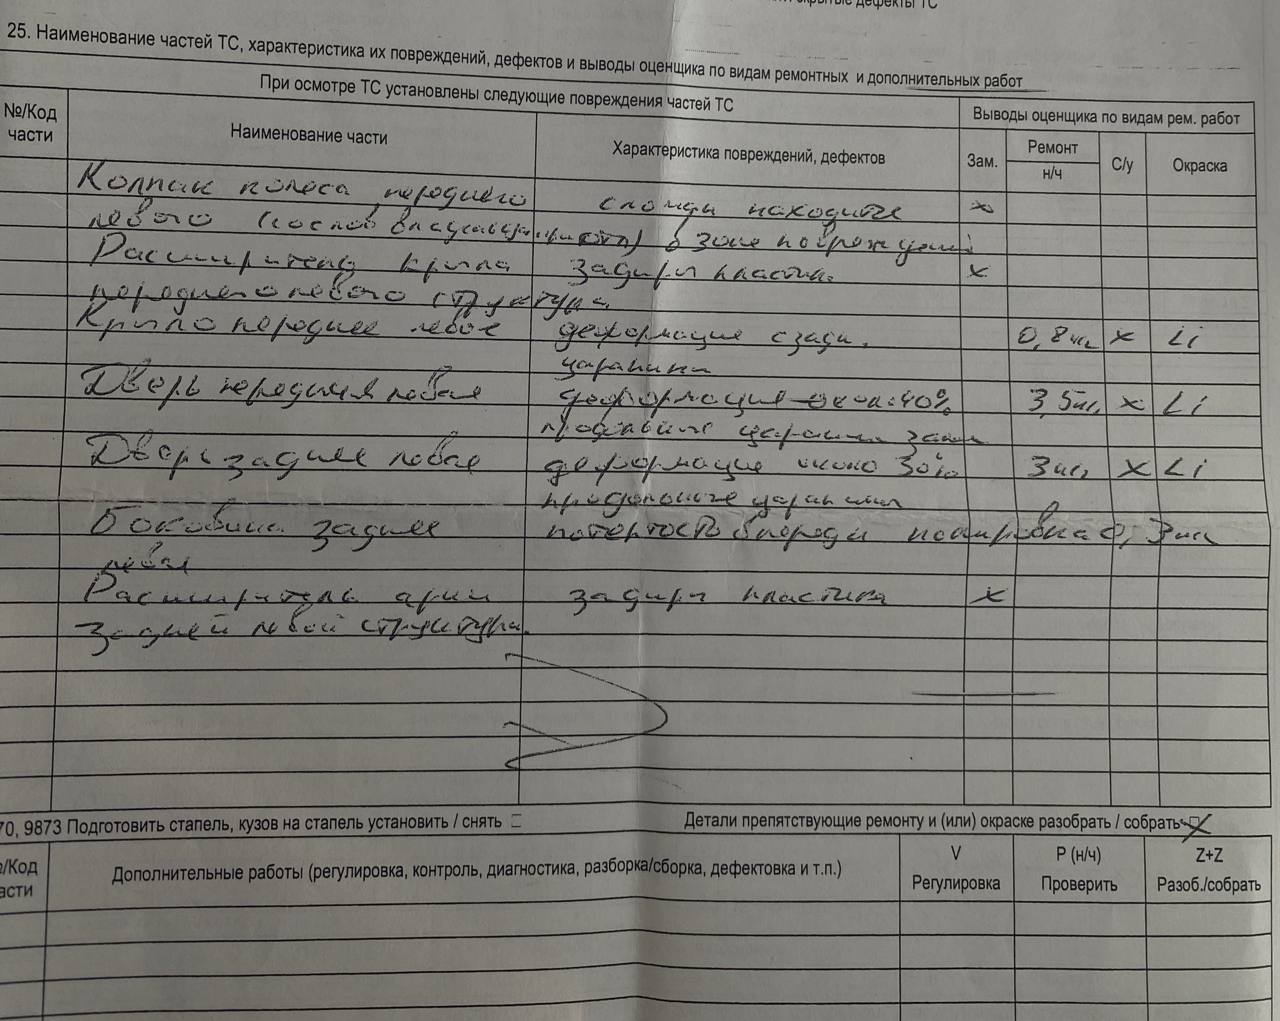 скрытые дефекты ТС
25. Наименование частей ТС, характеристика их повреждений, дефектов и выводы оценщика по видам ремонтных и дополнительных работ
При осмотре ТС установлены следующие повреждения частей ТС
Выводы оценщика по видам рем. работ
№/Код части
Наименование части
Характеристика повреждений, дефектов
Зам.
Ремонт
н/ч
С/у
Окраска
Колпак колеса переднего находится х
левого в зоне повреждений
Расширитель крыла задиры пластика х
переднего левого структура
Крыло переднее левое деформация сзади, 0,8 х Li
царапины
Дверь передняя левая деформация около 40% 3,5 х Li
царапины
Дверь задняя левая деформация около 30% 3 х Li
продольные царапины
Боковина задняя потертость впереди полировка 0,3
левая
Расширитель арки задиры пластика х
задней левой структура
70, 9873 Подготовить стапель, кузов на стапель установить / снять
Детали препятствующие ремонту и (или) окраске разобрать / собрать
№/Код части
Дополнительные работы (регулировка, контроль, диагностика, разборка/сборка, дефектовка и т.п.)
V
Регулировка
P (н/ч)
Проверить
Z+Z
Разоб./собрать